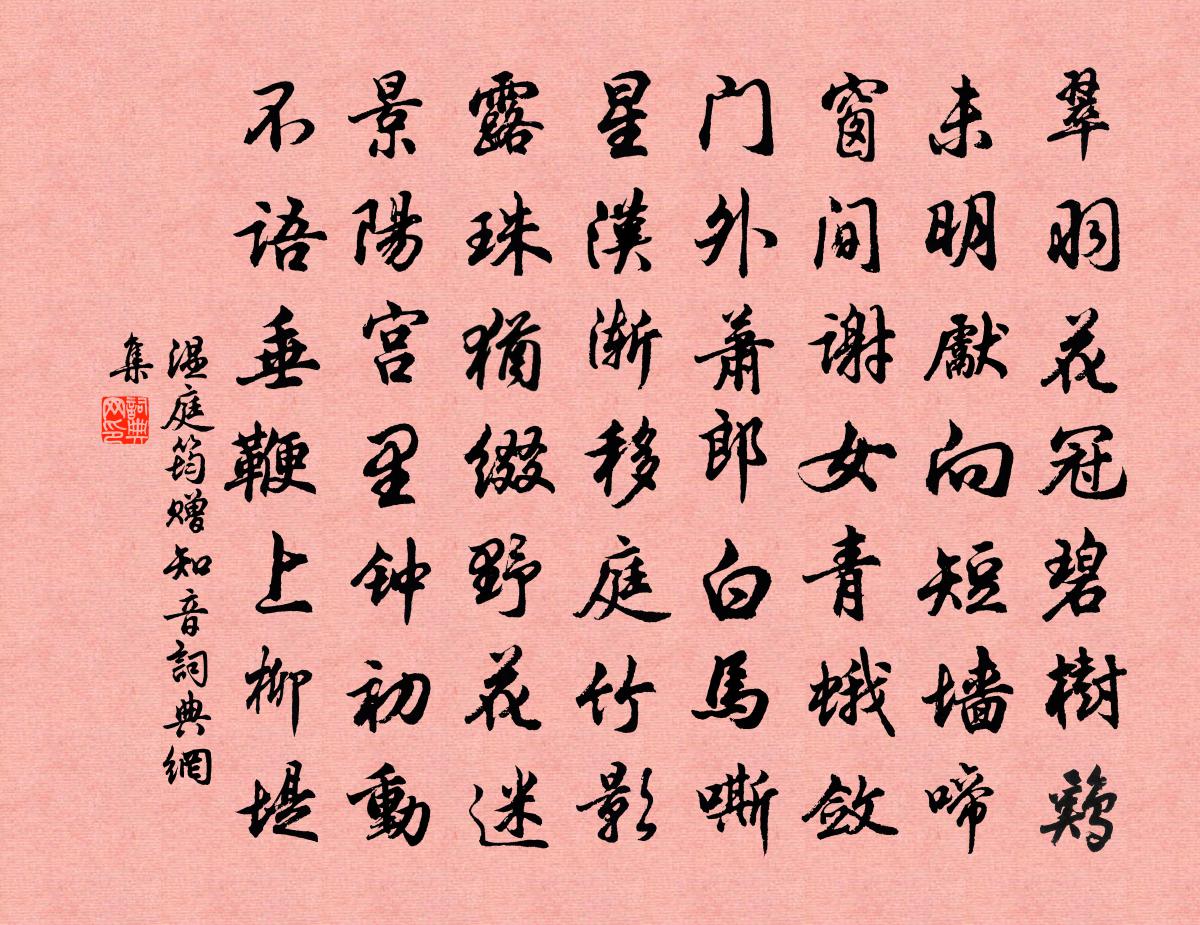 翠羽花冠碧樹鷄
未明獻向短墙啼
窗间谢女青蛾敛
门外萧郎白馬嘶
星漢渐移庭竹影
露珠猶缀野花迷
景陽宫里钟初動
不语垂鞭上柳堤
温庭筠赠知音詞典網
集
詞典
网印